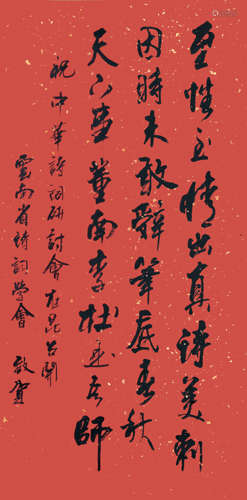 至性至情出真詩美刺
因時未敢辭筆底春秋
天下重董南李杜是吾師
祝中華詩詞研討會在昆召開
雲南省詩詞學會 敬賀